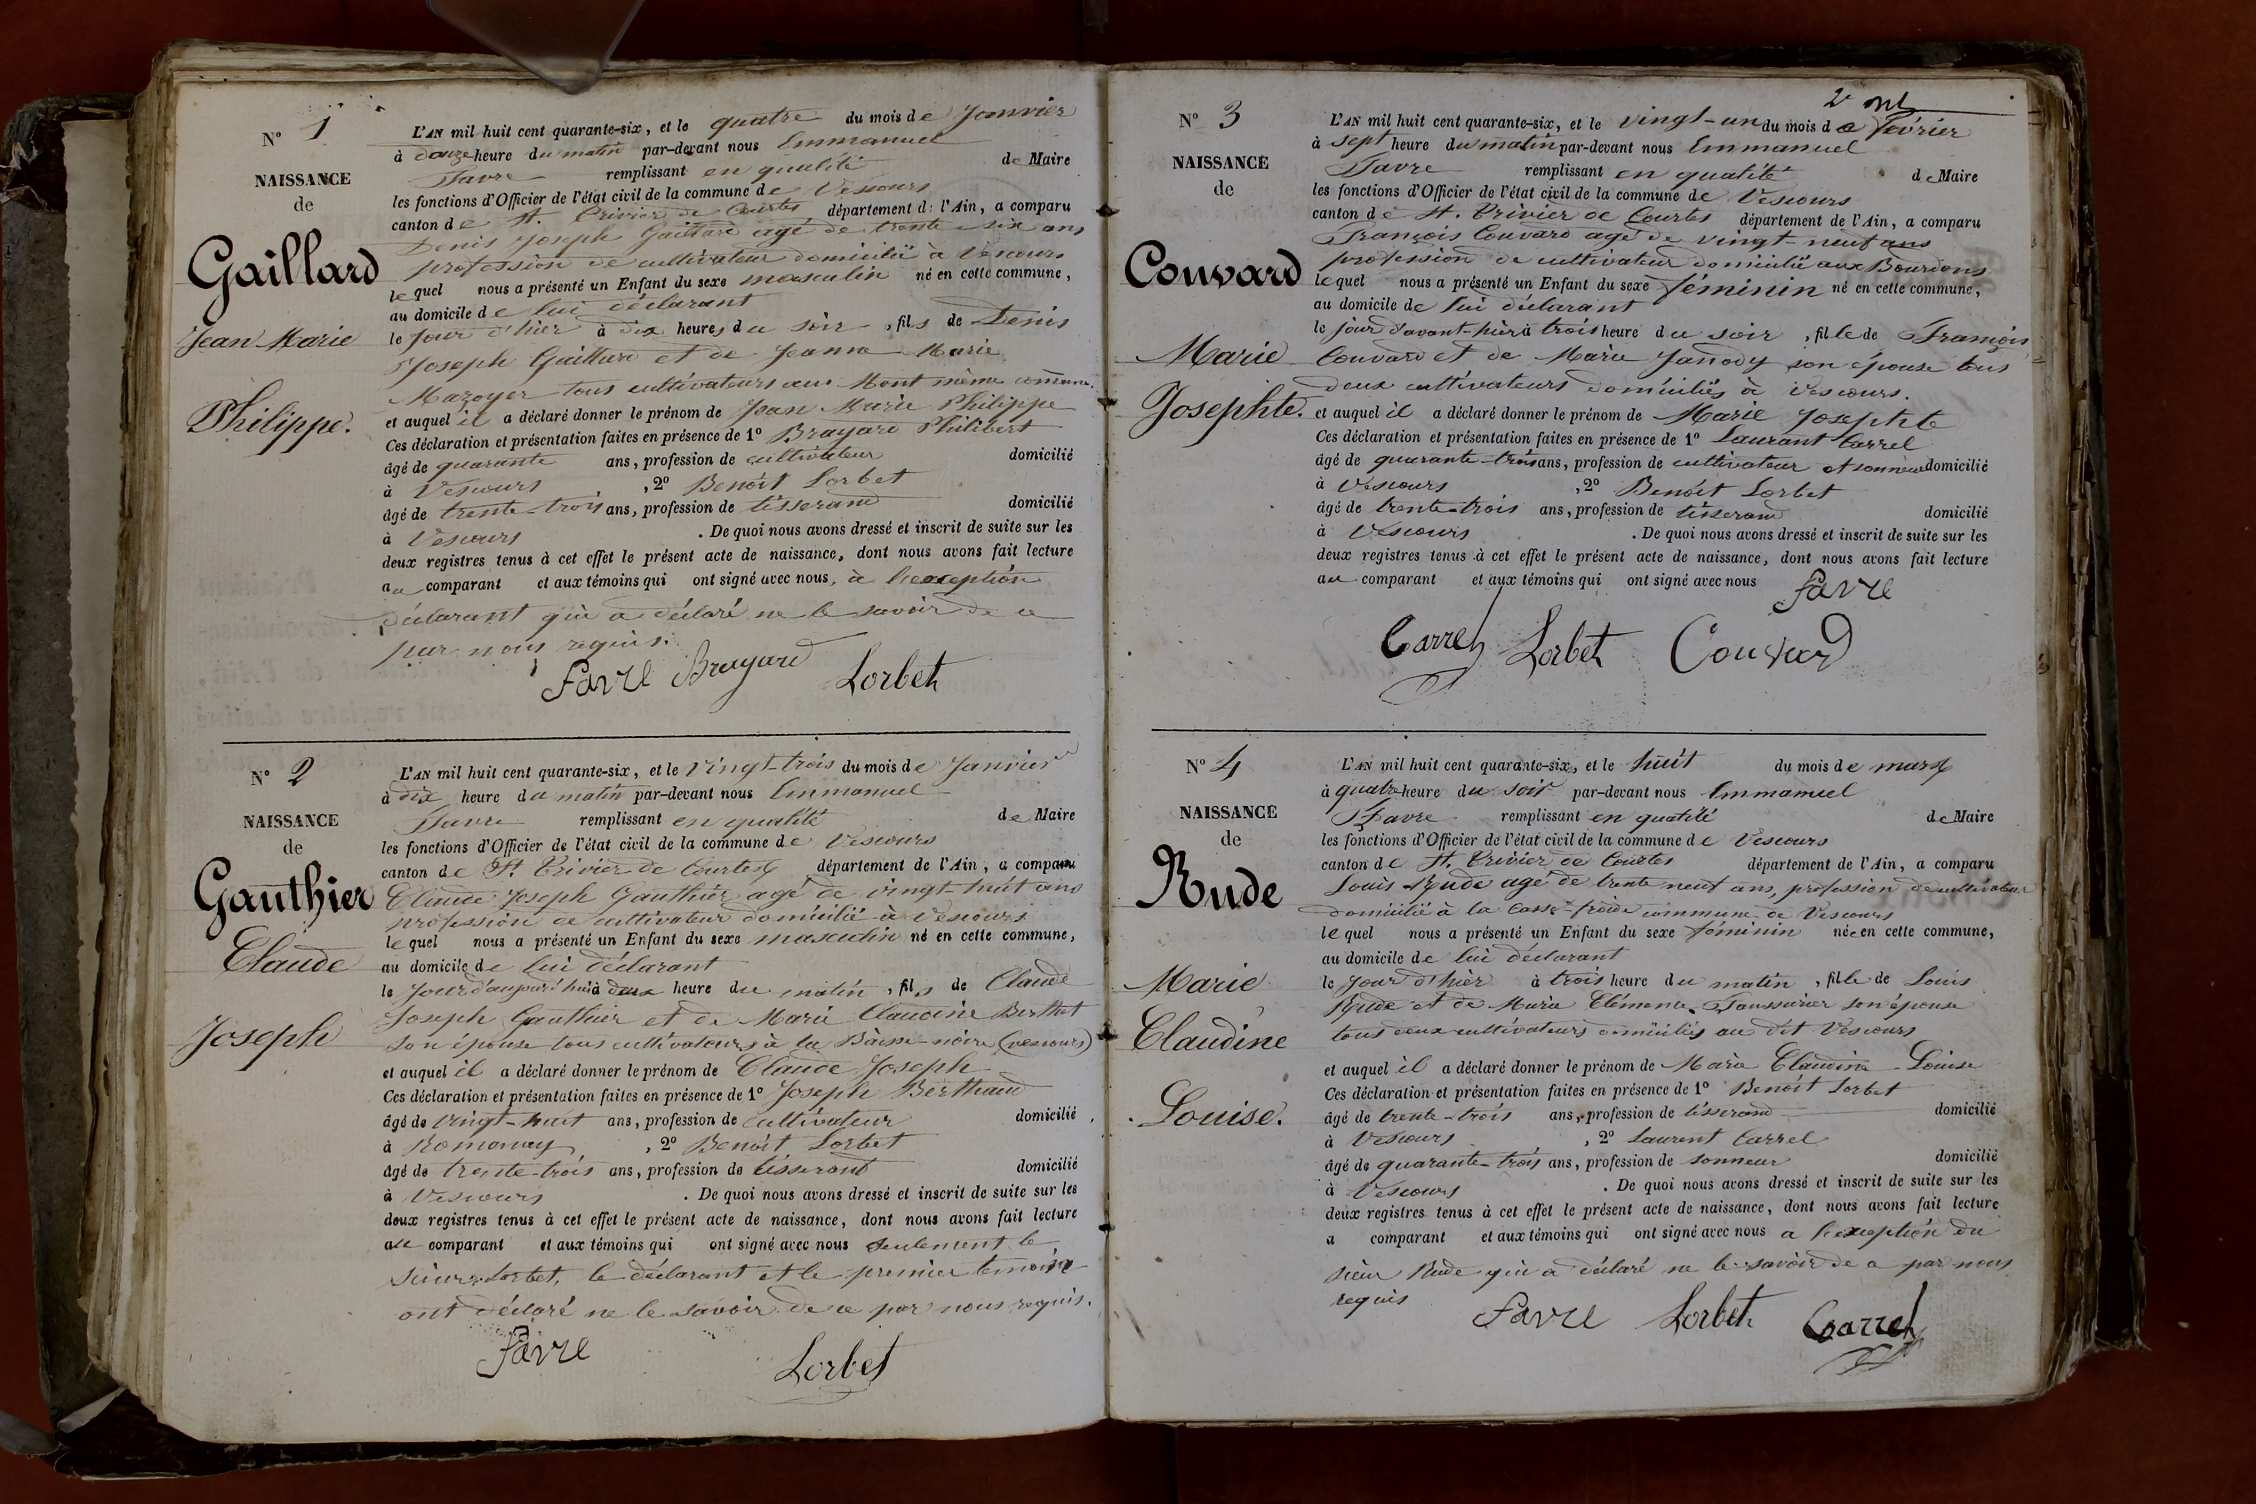 N° 1
NAISSANCE
de
Gaillard
Jean Marie
Philippe.
L'AN mil huit cent quarante-six, et le quatre du mois de Janvier
à douze heure du matin par-devant nous Emmanuel
Favre remplissant en qualité de Maire
les fonctions d'Officier de l'état civil de la commune de Vescours
canton de St. Trivier de Courtes département de l'Ain, a comparu
Denis Joseph Gaillard agé de trente six ans
profession de cultivateur domicilié à Vescours
lequel nous a présenté un Enfant du sexe masculin né en cette commune,
au domicile de lui déclarant
le jour d'hier à dix heures du soir, fils de Denis
Joseph Gaillard et de Jeanne Marie
Mazoyer tous cultivateurs aux Mont même commune.
et auquel il a déclaré donner le prénom de Jean Marie Philippe
Ces déclaration et présentation faites en présence de 1° Brayard Philibert
âgé de quarante ans, profession de cultivateur domicilié
à Vescours, 2° Benoît Lorbet
âgé de trente-trois ans, profession de tisserand domicilié
à Vescours. De quoi nous avons dressé et inscrit de suite sur les
deux registres tenus à cet effet le présent acte de naissance, dont nous avons fait lecture
au comparant et aux témoins qui ont signé avec nous, à l'exception
déclarant qui a déclaré ne le savoir de ce
par nous requis.
Favre Brayard Lorbet
N° 2
NAISSANCE
de
Gauthier
Claude
Joseph
L'AN mil huit cent quarante-six, et le vingt-trois du mois de Janvier
à dix heure du matin par-devant nous Emmanuel
Favre remplissant en qualité de Maire
les fonctions d'Officier de l'état civil de la commune de Vescours
canton de St. Trivier de Courtes département de l'Ain, a comparu
Claude Joseph Gauthier agé de vingt huit ans
profession de cultivateur domicilié à Vescours
lequel nous a présenté un Enfant du sexe masculin né en cette commune,
au domicile de lui déclarant
le jour d'aujourd'hui à deux heure du matin, fils de Claude
Joseph Gauthier et de Marie Claudine Berthet
son épouse tous cultivateurs à la Baisse-noire (vescours)
et auquel il a déclaré donner le prénom de Claude Joseph
Ces déclaration et présentation faites en présence de 1° Joseph Berthaud
âgé de vingt-huit ans, profession de cultivateur domicilié
à Romanay, 2° Benoît Lorbet
âgé de trente-trois ans, profession de tisserand domicilié
à Vescours. De quoi nous avons dressé et inscrit de suite sur les
deux registres tenus à cet effet le présent acte de naissance, dont nous avons fait lecture
au comparant et aux témoins qui ont signé avec nous seulement le
sieur Lorbet, le déclarant et le premier temoin
ont déclaré ne le savoir de ce par nous requis.
Favre Lorbet
N° 3
NAISSANCE
de
Couvard
Marie
Josephte.
L'AN mil huit cent quarante-six, et le vingt-un du mois de Février
à sept heure du matin par-devant nous Emmanuel
Favre remplissant en qualité de Maire
les fonctions d'Officier de l'état civil de la commune de Vescours
canton de St. Trivier de Courtes département de l'Ain, a comparu
François Couvard agé de vingt-neuf ans
profession de cultivateur domicilié aux Bourdons
lequel nous a présenté un Enfant du sexe féminin né en cette commune,
au domicile de lui déclarant
le jour d'avant-hier à trois heure du soir, fille de François
Couvard et de Marie Janody son épouse tous
deux cultivateurs domiciliés à Vescours.
et auquel il a déclaré donner le prénom de Marie Josephte
Ces déclaration et présentation faites en présence de 1° Laurant Carrel
âgé de quarante-trois ans, profession de cultivateur et sonneur domicilié
à Vescours, 2° Benoît Lorbet
âgé de trente-trois ans, profession de tisserand domicilié
à Vescours. De quoi nous avons dressé et inscrit de suite sur les
deux registres tenus à cet effet le présent acte de naissance, dont nous avons fait lecture
au comparant et aux témoins qui ont signé avec nous Favre
Carrel Lorbet Couvard
N° 4
NAISSANCE
de
Rude
Marie
Claudine
Louise.
L'AN mil huit cent quarante-six, et le huit du mois de mars
à quatre heure du soir par-devant nous Emmanuel
Favre remplissant en qualité de Maire
les fonctions d'Officier de l'état civil de la commune de Vescours
canton de St. Trivier de Courtes département de l'Ain, a comparu
Louis Rude agé de trente neuf ans, profession de cultivateur
domicilié à la Casse-froide commune de Vescours
lequel nous a présenté un Enfant du sexe féminin née en cette commune,
au domicile de lui déclarant
le jour d'hier à trois heure du matin, fille de Louis
Rude et de Marie Clémence son épouse
tous deux cultivateurs domiciliés au dit Vescours
et auquel il a déclaré donner le prénom de Marie Claudine Louise
Ces déclaration et présentation faites en présence de 1° Benoît Lorbet
âgé de trente-trois ans, profession de tisserand domicilié
à Vescours, 2° Laurent Carrel
âgé de quarante-trois ans, profession de sonneur domicilié
à Vescours. De quoi nous avons dressé et inscrit de suite sur les
deux registres tenus à cet effet le présent acte de naissance, dont nous avons fait lecture
a comparant et aux témoins qui ont signé avec nous a l'exception du
sieur Rude qui a déclaré ne le savoir de ce par nous
requis
Favre Lorbet Carrel